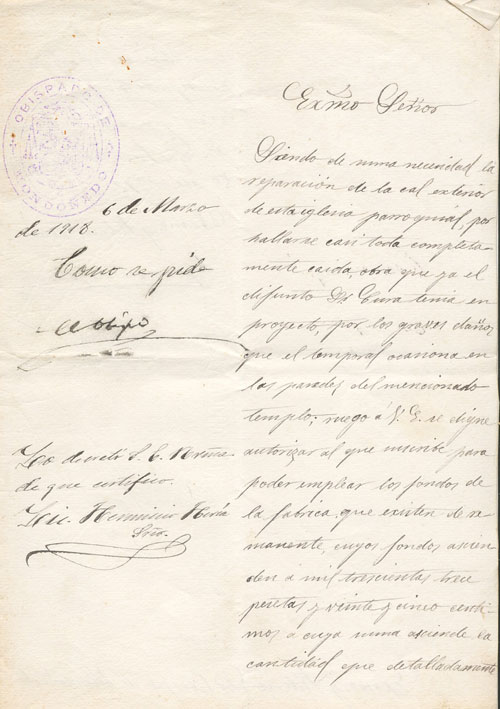 OBISPADO DE
MONDOÑEDO
6 de Marzo
de 1918.
Como se pide
El Obispo
Lo decretó S. E. Rvma
de que certifico.
Lic. Herminio
Srio.
Exmo Señor
Siendo de suma necesidad la
reparación de la cal exterior
de esta iglesia parroquial, por
hallarse casi toda completa-
mente caida, obra que ya el
difunto Sr Cura tenia en
proyecto, por los graves daños
que el temporal ocasiona en
las paredes del mencionado
templo; ruego a V. E. se digne
autorizar al que suscribe para
poder emplear los fondos de
la fabrica que existen de re-
manente, cuyos fondos ascien-
den á mil trescientas trece
pesetas y veinte y cinco centi-
mos a cuya suma asciende la
cantidad que detalladamente